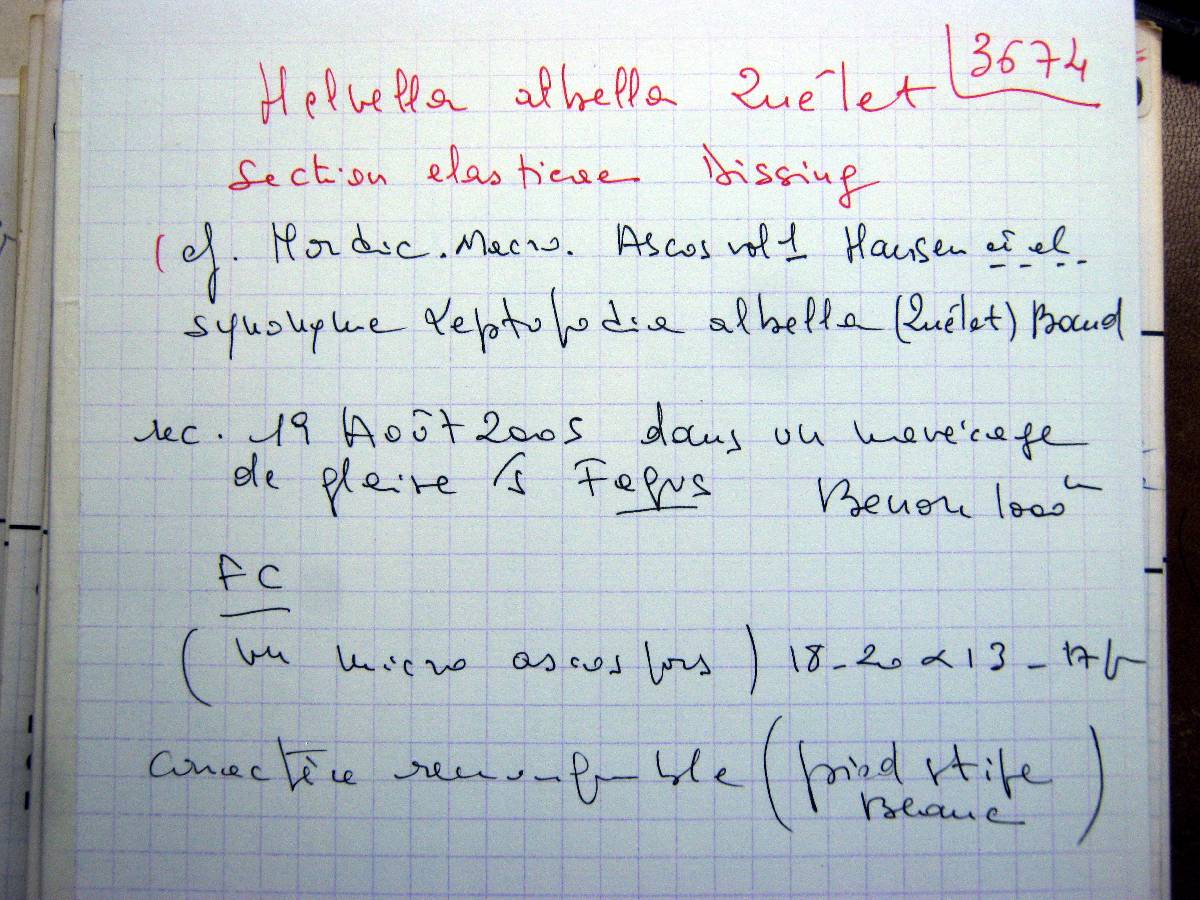 Helvella albella Quélet 3674
Section elasticae Dissing
(cf. Nordic. Macro. Ascos vol 1 Hansen et al
synonyme Leptopodia albella (Quélet) Boud
rec. 19 Août 2005 dans un marécage
de plaine /s Fagus
Benon 1000
FC
(vu micro ascospores) 18-20 x 13-14 µ
caractère remarquable (pied stipe
Blanc)